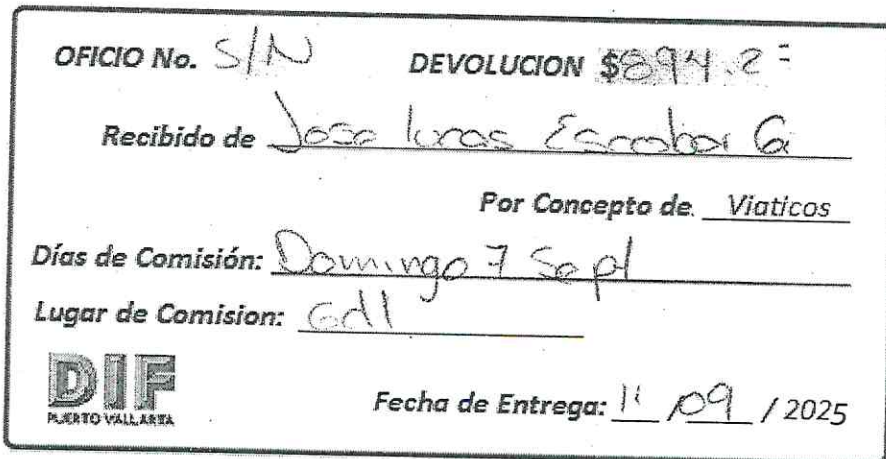 OFICIO No. S/N DEVOLUCION $894.2=
Recibido de Jose lucas Escobar G
Por Concepto de. Viaticos
Días de Comisión: Domingo 7 Sept
Lugar de Comision: Gdl
DIF
PUERTO VALLARTA
Fecha de Entrega: 11 /09 / 2025